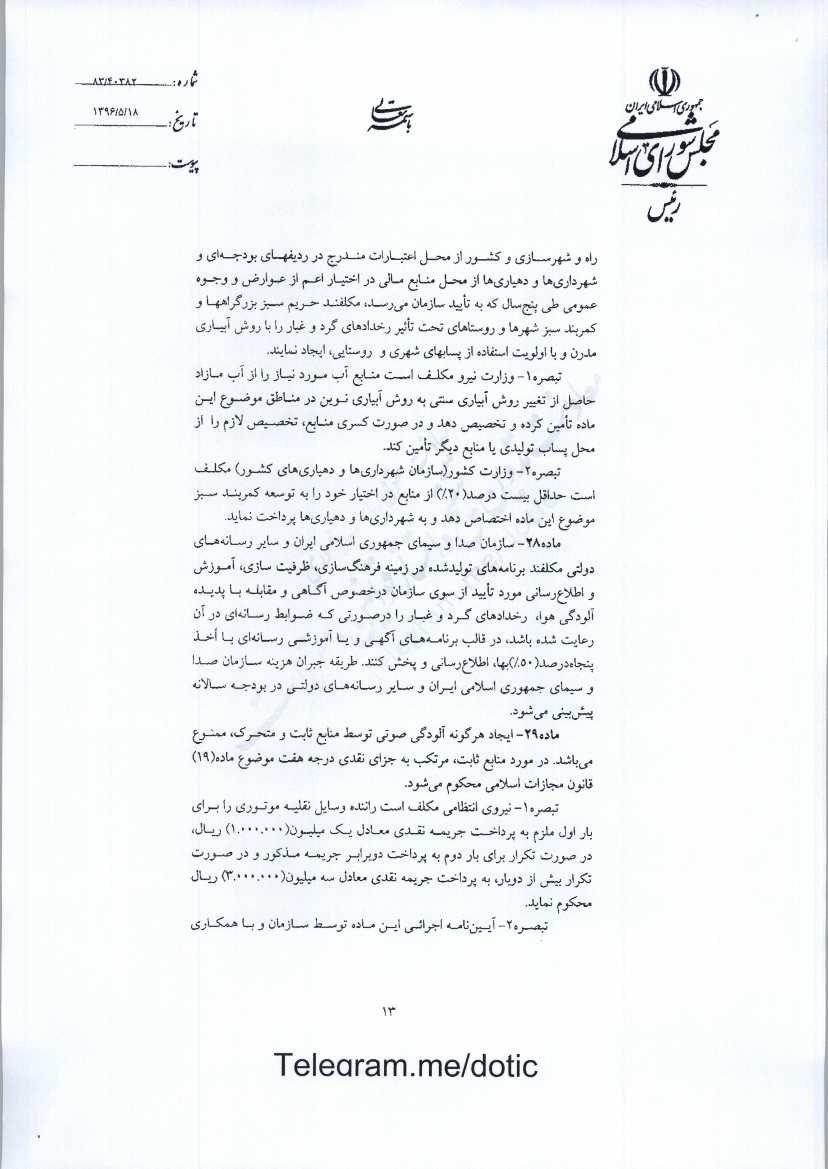 جمهوری اسلامی ایران
مجلس شورای اسلامی
رئیس
باسمه تعالی
شماره: ۸۳/۴۰۳۸۲
تاریخ: ۱۳۹۶/۵/۱۸
پیوست:
راه و شهرسازی و کشور از محل اعتبارات مندرج در ردیفهای بودجه‌ای و
شهرداری‌ها و دهیاری‌ها از محل منابع مالی در اختیار اعم از عوارض و وجوه
عمومی طی پنج‌سال که به تأیید سازمان می‌رسد، مکلفند حریم سبز بزرگراهها و
کمربند سبز شهرها و روستاهای تحت تأثیر رخدادهای گرد و غبار را با روش آبیاری
مدرن و با اولویت استفاده از پسابهای شهری و روستایی، ایجاد نمایند.
تبصره۱- وزارت نیرو مکلف است منابع آب مورد نیاز را از آب مازاد
حاصل از تغییر روش آبیاری سنتی به روش آبیاری نوین در مناطق موضوع این
ماده تأمین کرده و تخصیص دهد و در صورت کسری منابع، تخصیص لازم را از
محل پساب تولیدی یا منابع دیگر تأمین کند.
تبصره۲- وزارت کشور(سازمان شهرداری‌ها و دهیاری‌های کشور) مکلف
است حداقل بیست درصد(۲۰٪) از منابع در اختیار خود را به توسعه کمربند سبز
موضوع این ماده اختصاص دهد و به شهرداری‌ها و دهیاری‌ها پرداخت نماید.
ماده۲۸- سازمان صدا و سیمای جمهوری اسلامی ایران و سایر رسانه‌های
دولتی مکلفند برنامه‌های تولیدشده در زمینه فرهنگ‌سازی، ظرفیت سازی، آموزش
و اطلاع‌رسانی مورد تأیید از سوی سازمان درخصوص آگاهی و مقابله با پدیده
آلودگی هوا، رخدادهای گرد و غبار را درصورتی که ضوابط رسانه‌ای در آن
رعایت شده باشد، در قالب برنامه‌های آگهی و یا آموزشی رسانه‌ای با أخذ
پنجاه‌درصد(۵۰٪)بها، اطلاع‌رسانی و پخش کنند. طریقه جبران هزینه سازمان صدا
و سیمای جمهوری اسلامی ایران و سایر رسانه‌های دولتی در بودجه سالانه
پیش‌بینی می‌شود.
ماده۲۹- ایجاد هرگونه آلودگی صوتی توسط منابع ثابت و متحرک، ممنوع
می‌باشد. در مورد منابع ثابت، مرتکب به جزای نقدی درجه هفت موضوع ماده(۱۹)
قانون مجازات اسلامی محکوم می‌شود.
تبصره۱- نیروی انتظامی مکلف است راننده وسایل نقلیه موتوری را برای
بار اول ملزم به پرداخت جریمه نقدی معادل یک میلیون(۱.۰۰۰.۰۰۰) ریال،
در صورت تکرار برای بار دوم به پرداخت دوبرابر جریمه مذکور و در صورت
تکرار بیش از دوبار، به پرداخت جریمه نقدی معادل سه میلیون(۳.۰۰۰.۰۰۰) ریال
محکوم نماید.
تبصره۲- آیین‌نامه اجرائی این ماده توسط سازمان و با همکاری
۱۳
Telegram.me/dotic